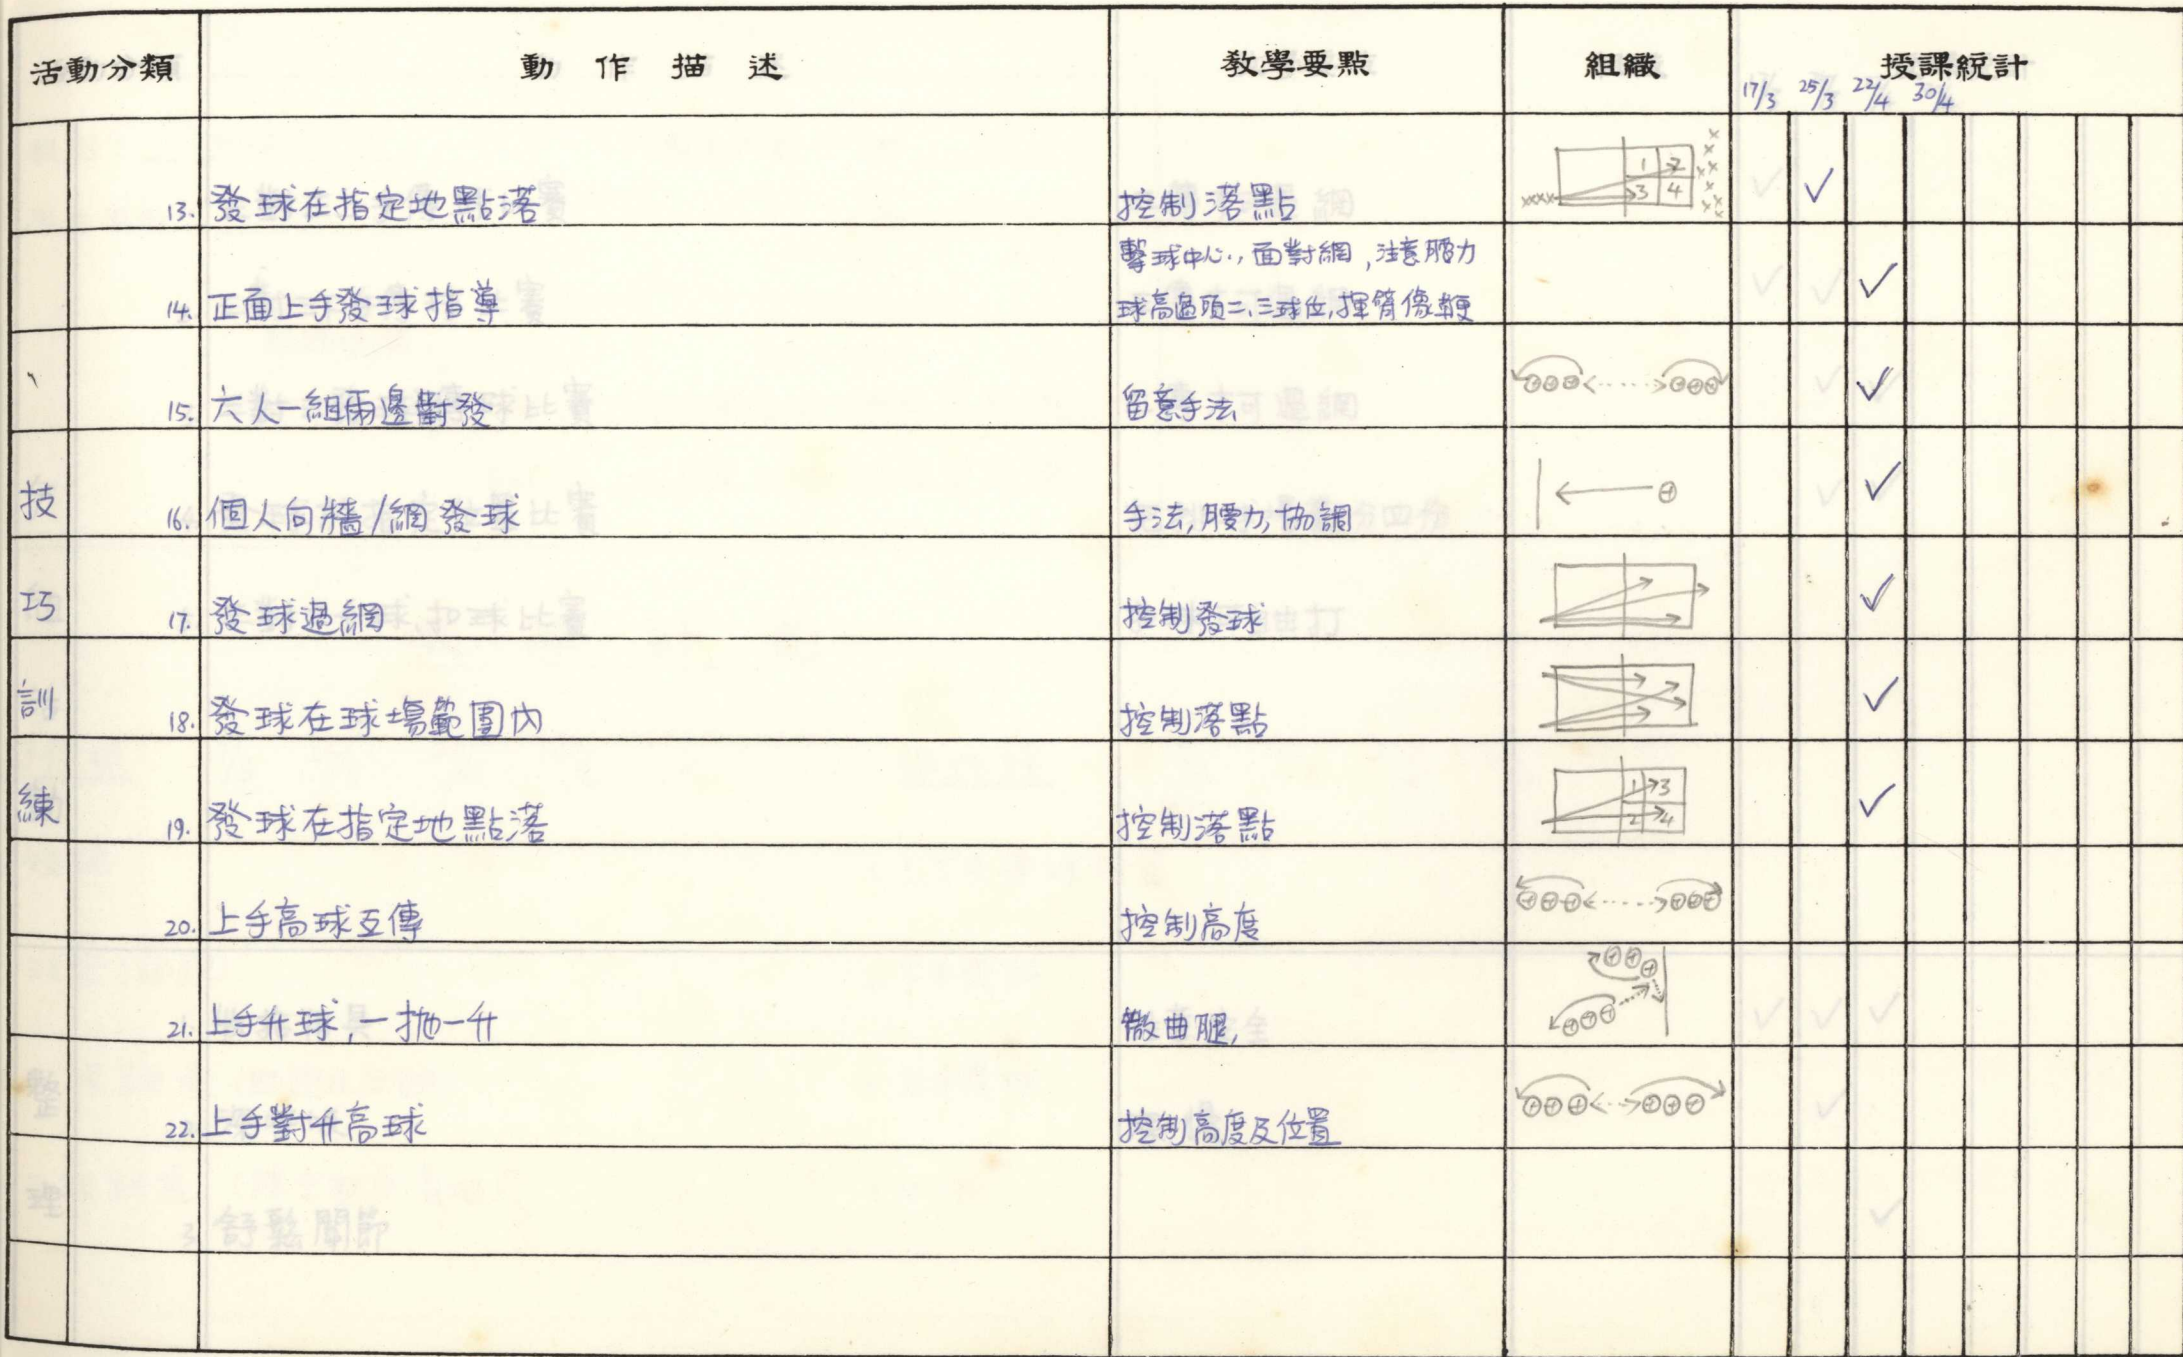 活動分類 動作描述 教學要點 組織 授課統計
17/3 25/3 22/4 30/4
技巧訓練
13. 發球在指定地點落 控制落點 1 2 3 4 ✓
擊球中心, 面對網, 注意腰力
14. 正面上手發球指導 球高過頭二、三球位, 揮臂像鞭 ✓
15. 六人一組兩邊對發 留意手法 ✓
16. 個人向牆/網發球 手法, 腰力, 協調 ✓
17. 發球過網 控制發球 ✓
18. 發球在球場範圍內 控制落點 ✓
19. 發球在指定地點落 控制落點 1 3 2 4 ✓
20. 上手高球互傳 控制高度
21. 上手升球, 一拋一升 微曲腿,
22. 上手對升高球 控制高度及位置
整理
3. 舒鬆關節